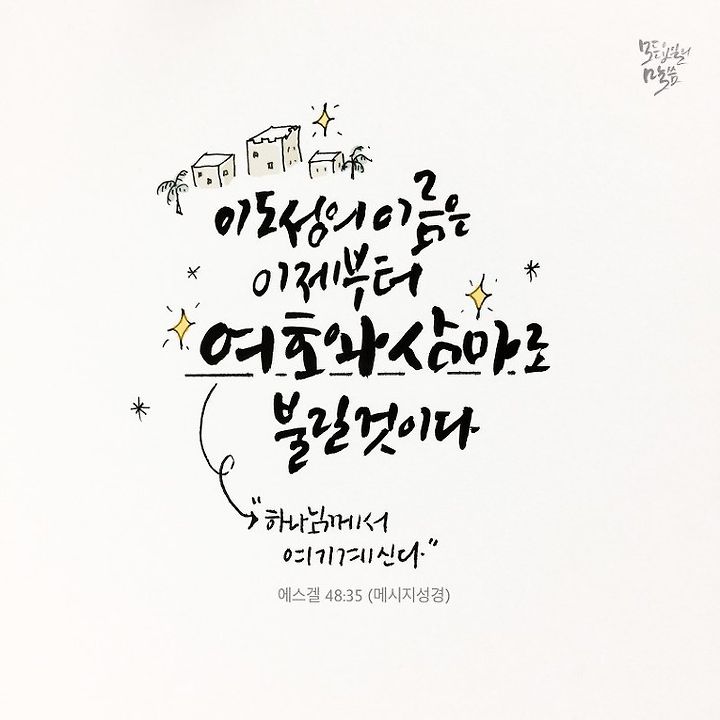 이 도성의 이름은
이제부터
여호와 삼마로
불릴 것이다
"하나님께서
여기 계신다."
에스겔 48:35 (메시지성경)